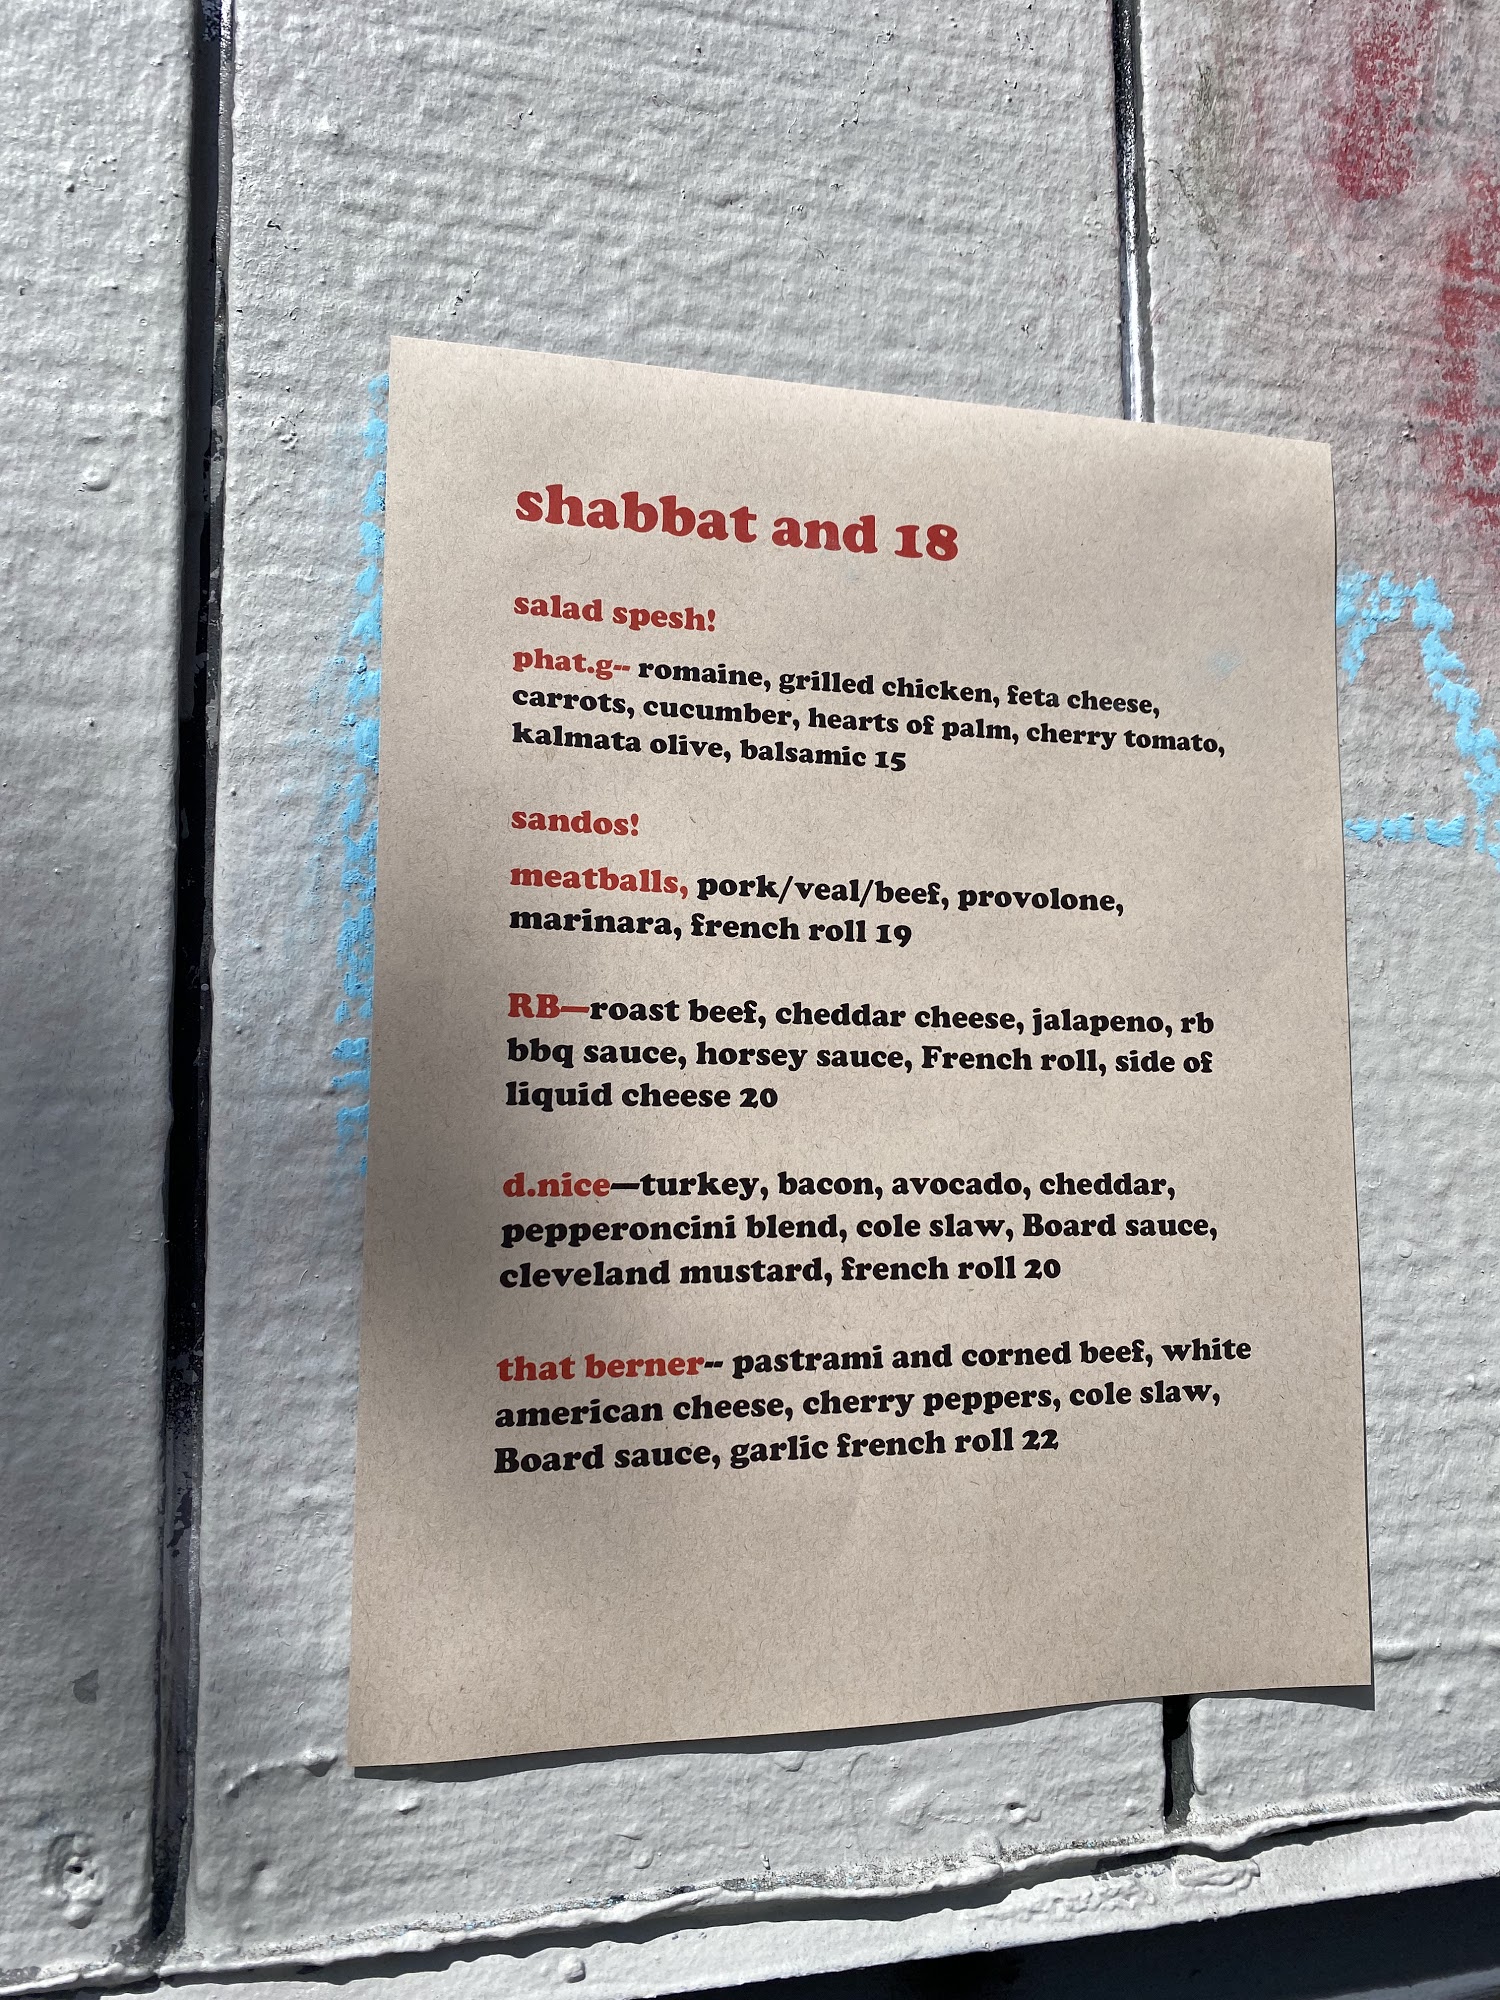 shabbat and 18
salad spesh!
phat.g-- romaine, grilled chicken, feta cheese,
carrots, cucumber, hearts of palm, cherry tomato,
kalmata olive, balsamic 15
sandos!
meatballs, pork/veal/beef, provolone,
marinara, french roll 19
RB—roast beef, cheddar cheese, jalapeno, rb
bbq sauce, horsey sauce, French roll, side of
liquid cheese 20
d.nice—turkey, bacon, avocado, cheddar,
pepperoncini blend, cole slaw, Board sauce,
cleveland mustard, french roll 20
that berner-- pastrami and corned beef, white
american cheese, cherry peppers, cole slaw,
Board sauce, garlic french roll 22